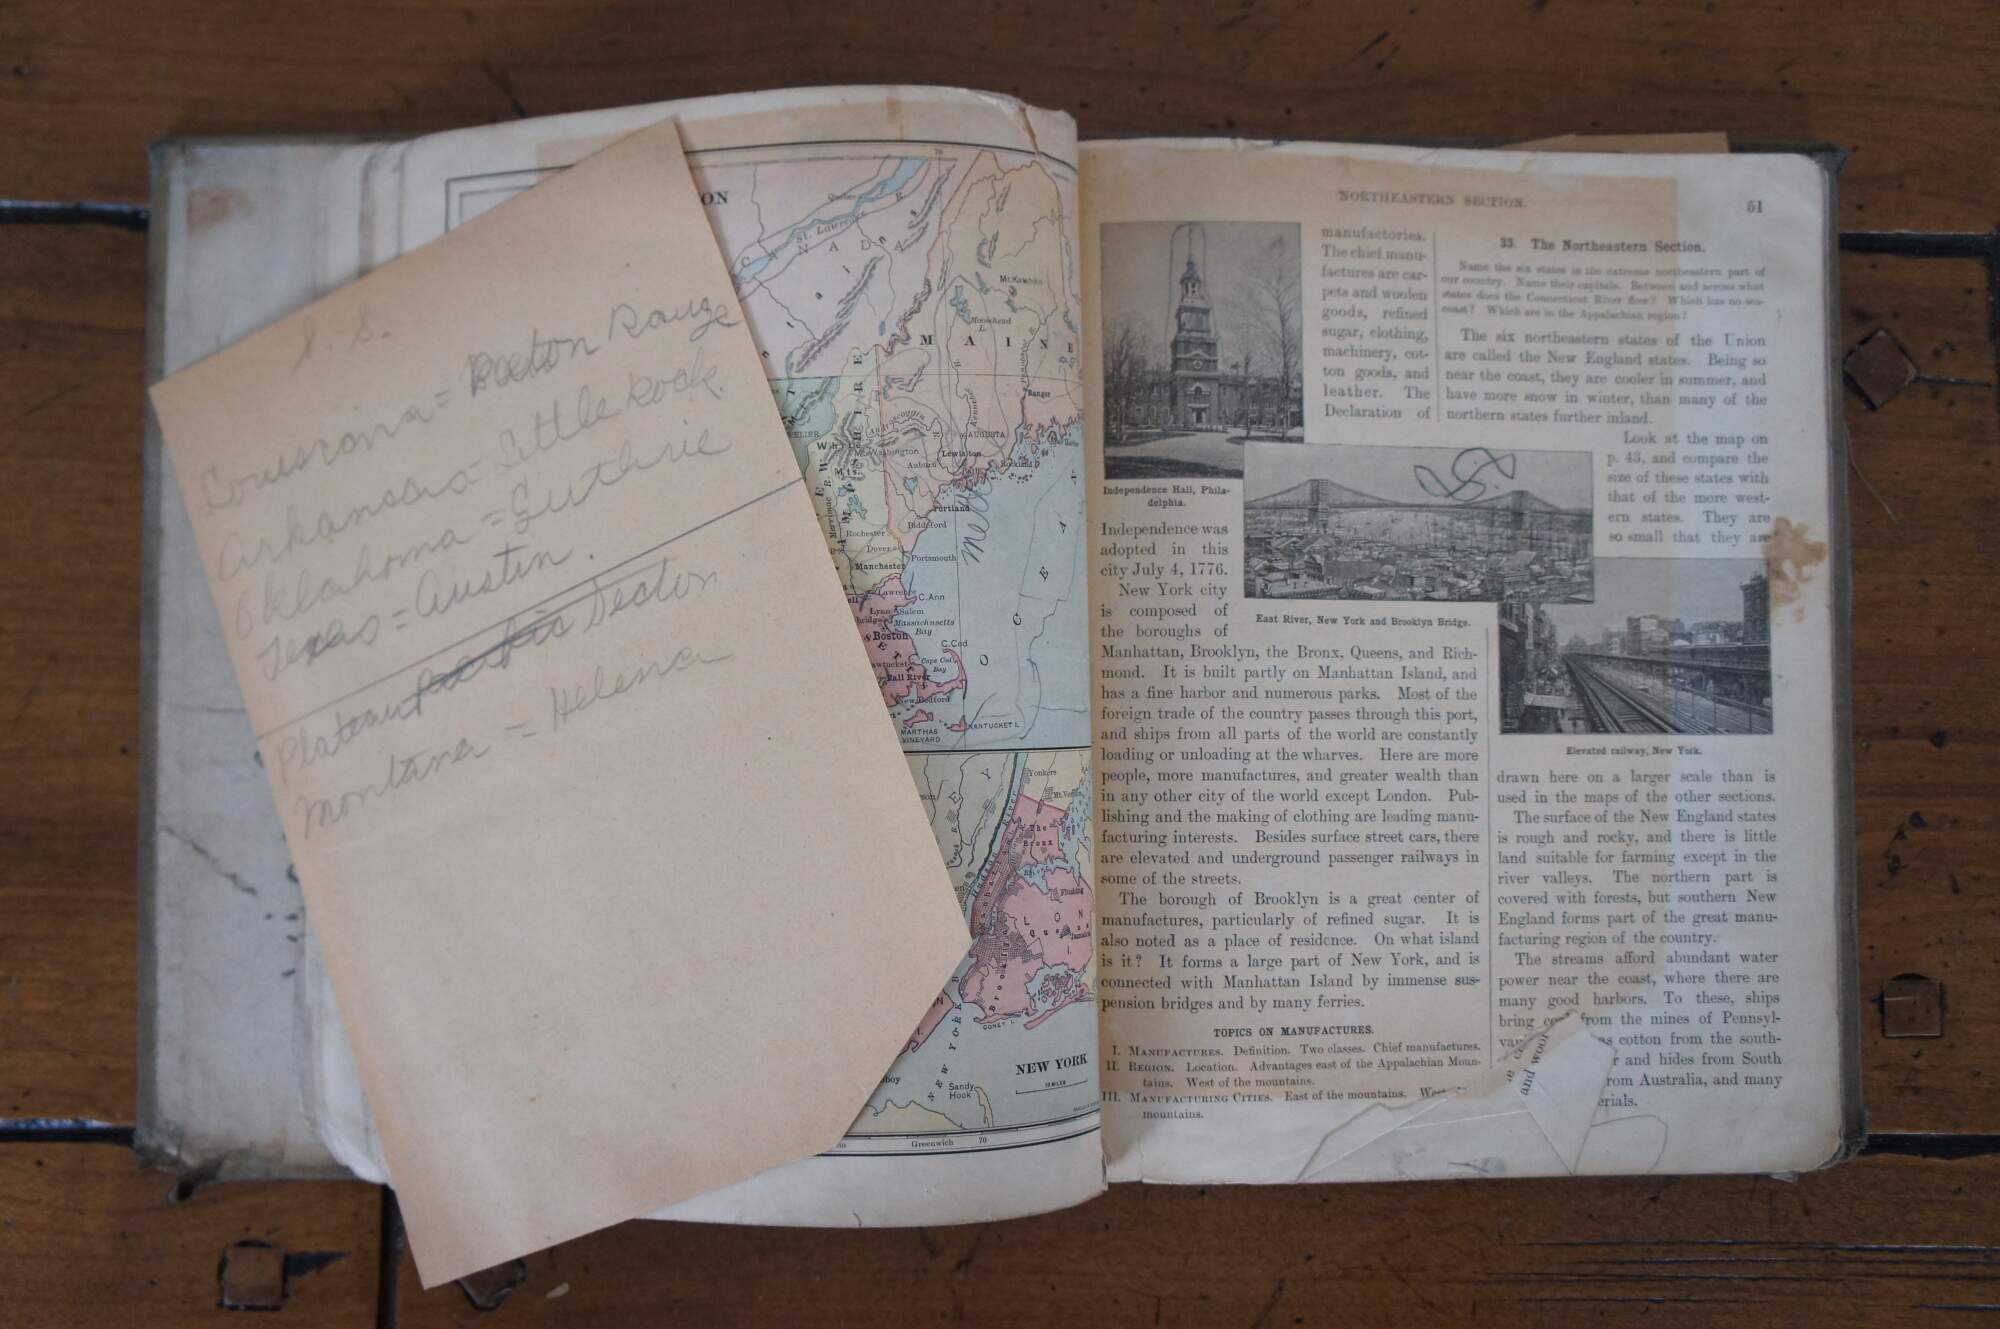 S.
Louisiana = Baton Rouge
Arkansas = Little Rock
Oklahoma = Guthrie
Texas = Austin.
Plateau Section
Montana = Helena
ON
70
Quebec
R.
St. Lawrence
CANADA
Mt. Katahdin
Moosehead
L.
MAINE
Bangor
Kennebec
AUGUSTA
Mt. Washington
Lewiston
Auburn
Rockland
Mts.
Portland
Biddeford
Rochester
Dover
Portsmouth
Manchester
Merrimac R.
NEW HAMPSHIRE
Lawrence
C. Ann
Lynn
Salem
Massachusetts
Bay
Boston
C. Cod
Cape Cod
Bay
Fall River
New Bedford
MARTHAS
VINEYARD
NANTUCKET I.
OCEA
Yonkers
Mt. Vernon
The
Bronx
Hudson River
Manhattan
Flushing
LON
Queens
Jamaica
Brooklyn
CONEY I.
NEW YORK
10 MILES
NEW YORK
Sandy
Hook
Greenwich
70
NORTHEASTERN SECTION.
51
manufactories.
The chief manu-
factures are car-
pets and woolen
goods, refined
sugar, clothing,
machinery, cot-
ton goods, and
leather. The
Declaration of
Independence Hall, Phila-
delphia.
Independence was
adopted in this
city July 4, 1776.
New York city
is composed of
the boroughs of
Manhattan, Brooklyn, the Bronx, Queens, and Rich-
mond. It is built partly on Manhattan Island, and
has a fine harbor and numerous parks. Most of the
foreign trade of the country passes through this port,
and ships from all parts of the world are constantly
loading or unloading at the wharves. Here are more
people, more manufactures, and greater wealth than
in any other city of the world except London. Pub-
lishing and the making of clothing are leading manu-
facturing interests. Besides surface street cars, there
are elevated and underground passenger railways in
some of the streets.
The borough of Brooklyn is a great center of
manufactures, particularly of refined sugar. It is
also noted as a place of residence. On what island
is it? It forms a large part of New York, and is
connected with Manhattan Island by immense sus-
pension bridges and by many ferries.
TOPICS ON MANUFACTURES.
I. MANUFACTURES. Definition. Two classes. Chief manufactures.
II. REGION. Location. Advantages east of the Appalachian Moun-
tains. West of the mountains.
III. MANUFACTURING CITIES. East of the mountains.
mountains.
East River, New York and Brooklyn Bridge.
33. The Northeastern Section.
Name the six states in the extreme northeastern part of
our country. Name their capitals. Between and across what
states does the Connecticut River flow? Which has no sea-
coast? Which are in the Appalachian region?
The six northeastern states of the Union
are called the New England states. Being so
near the coast, they are cooler in summer, and
have more snow in winter, than many of the
northern states further inland.
Look at the map on
p. 43, and compare the
size of these states with
that of the more west-
ern states. They are
so small that they are
Elevated railway, New York.
drawn here on a larger scale than is
used in the maps of the other sections.
The surface of the New England states
is rough and rocky, and there is little
land suitable for farming except in the
river valleys. The northern part is
covered with forests, but southern New
England forms part of the great manu-
facturing region of the country.
The streams afford abundant water
power near the coast, where there are
many good harbors. To these, ships
bring from the mines of Pennsyl-
cotton from the south-
and hides from South
from Australia, and many
and wool